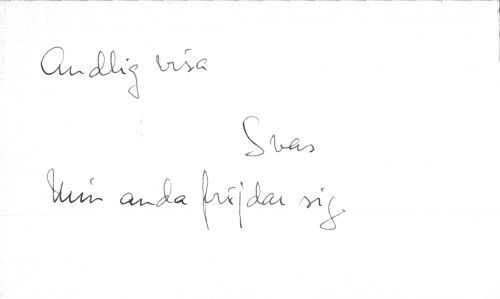 Andlig visa
Svas
Min anda fröjdar sig